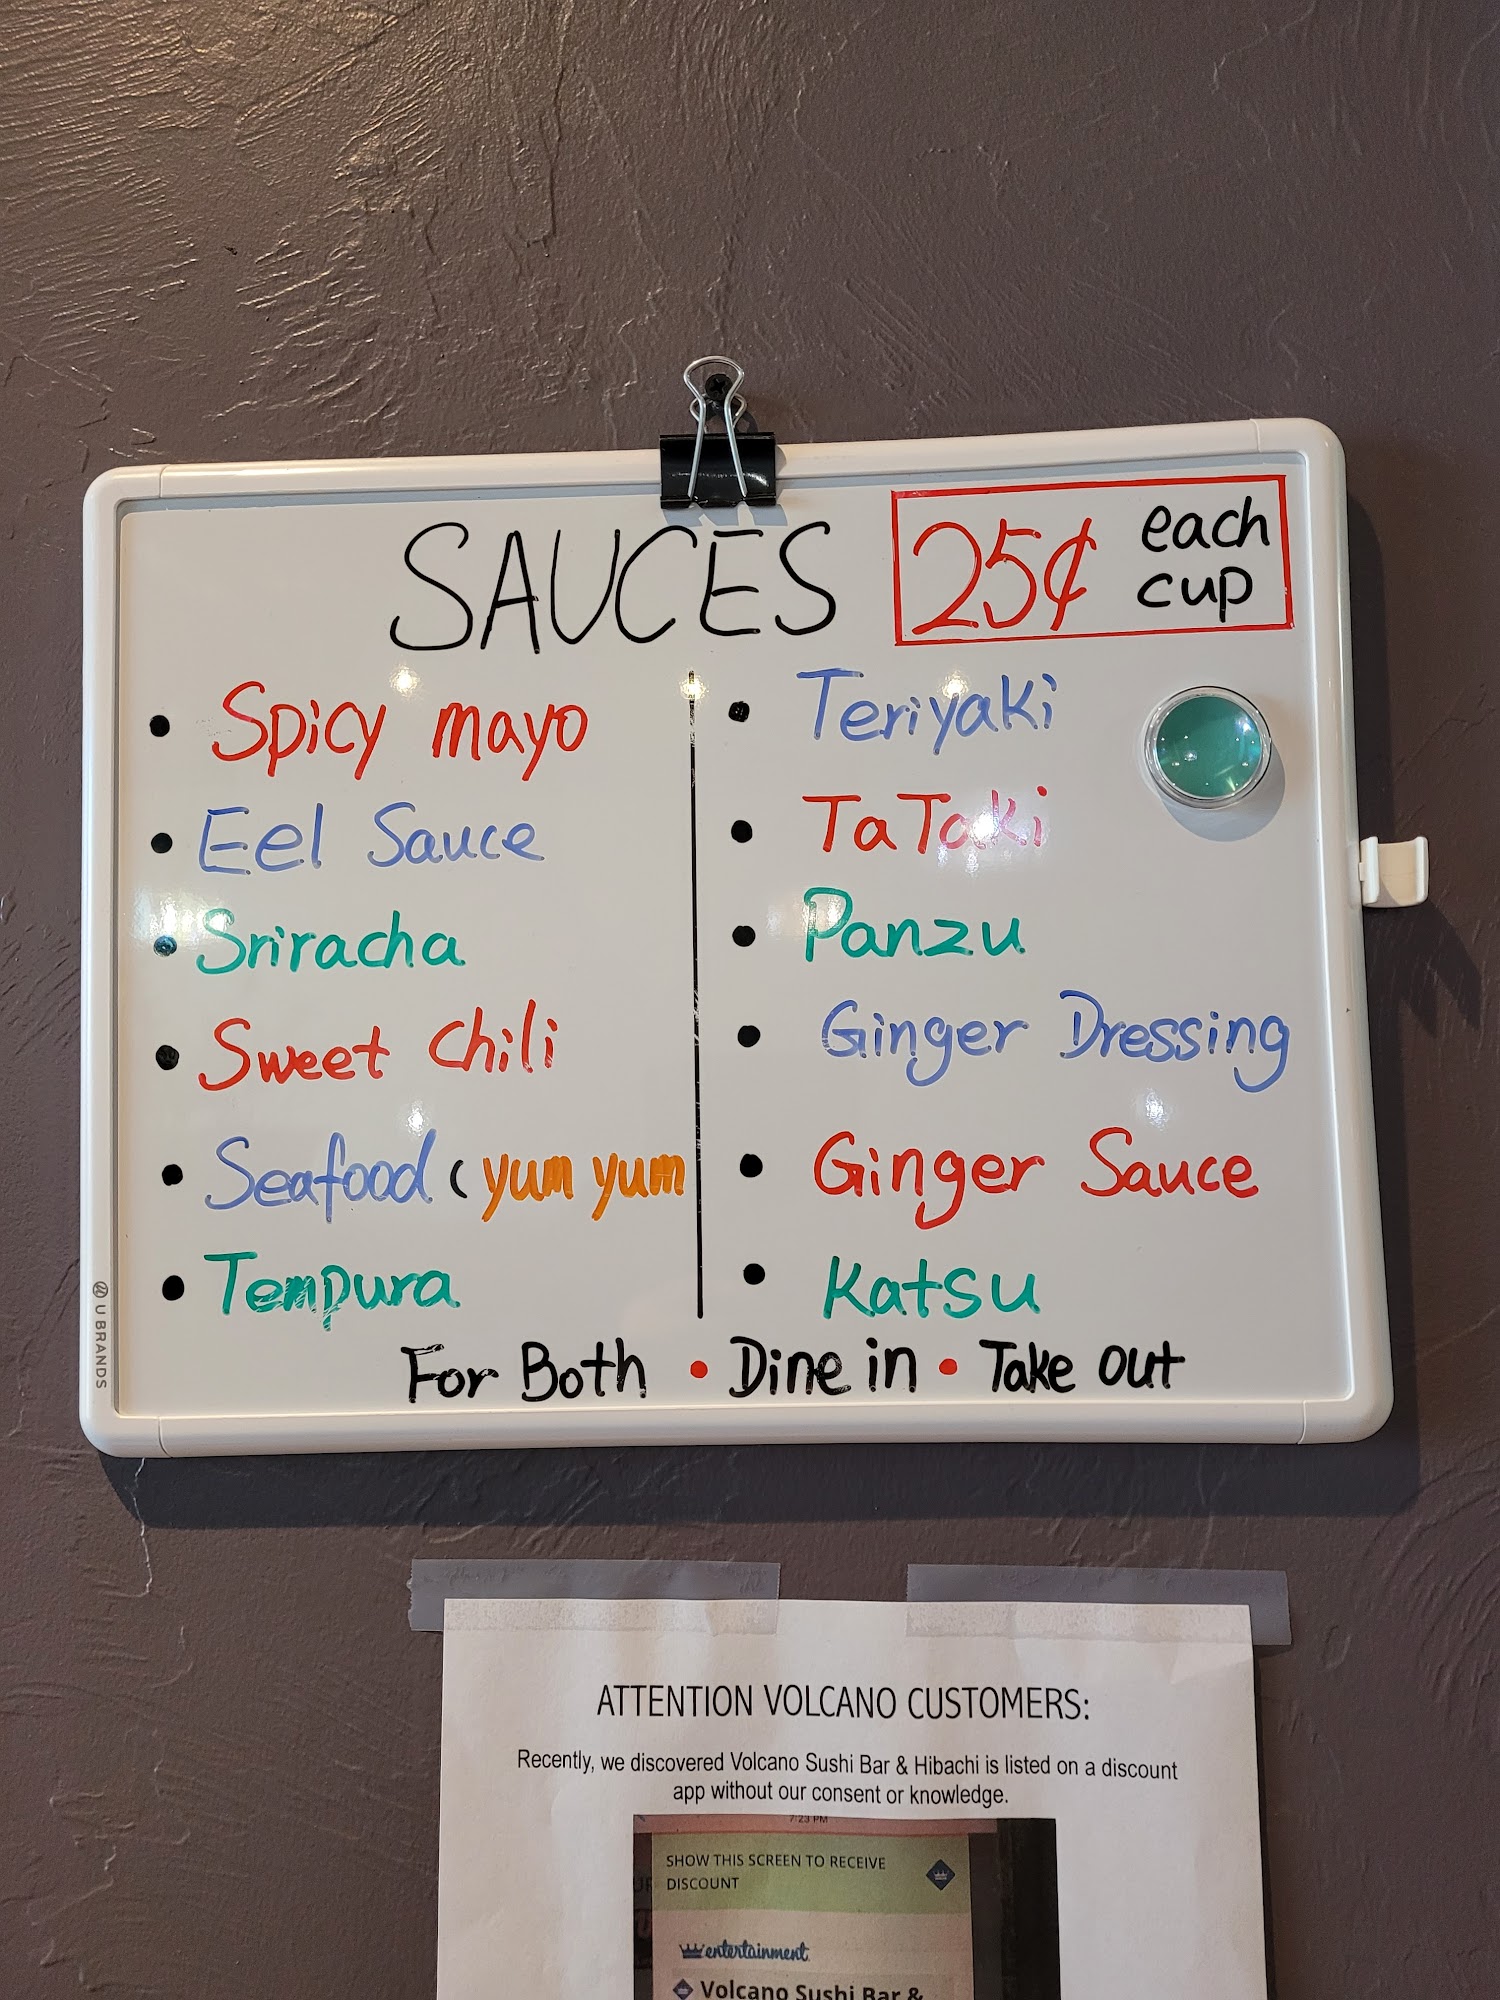 SAUCES
25¢ each cup
• Spicy mayo
• Eel Sauce
• Sriracha
• Sweet chili
• Seafood ( yum yum
• Tempura
• Teriyaki
• TaTaki
• Panzu
• Ginger Dressing
• Ginger Sauce
• Katsu
For Both • Dine in • Take out
U BRANDS
ATTENTION VOLCANO CUSTOMERS:
Recently, we discovered Volcano Sushi Bar & Hibachi is listed on a discount
app without our consent or knowledge.
7:23 PM
SHOW THIS SCREEN TO RECEIVE
DISCOUNT
entertainment
Volcano Sushi Bar &